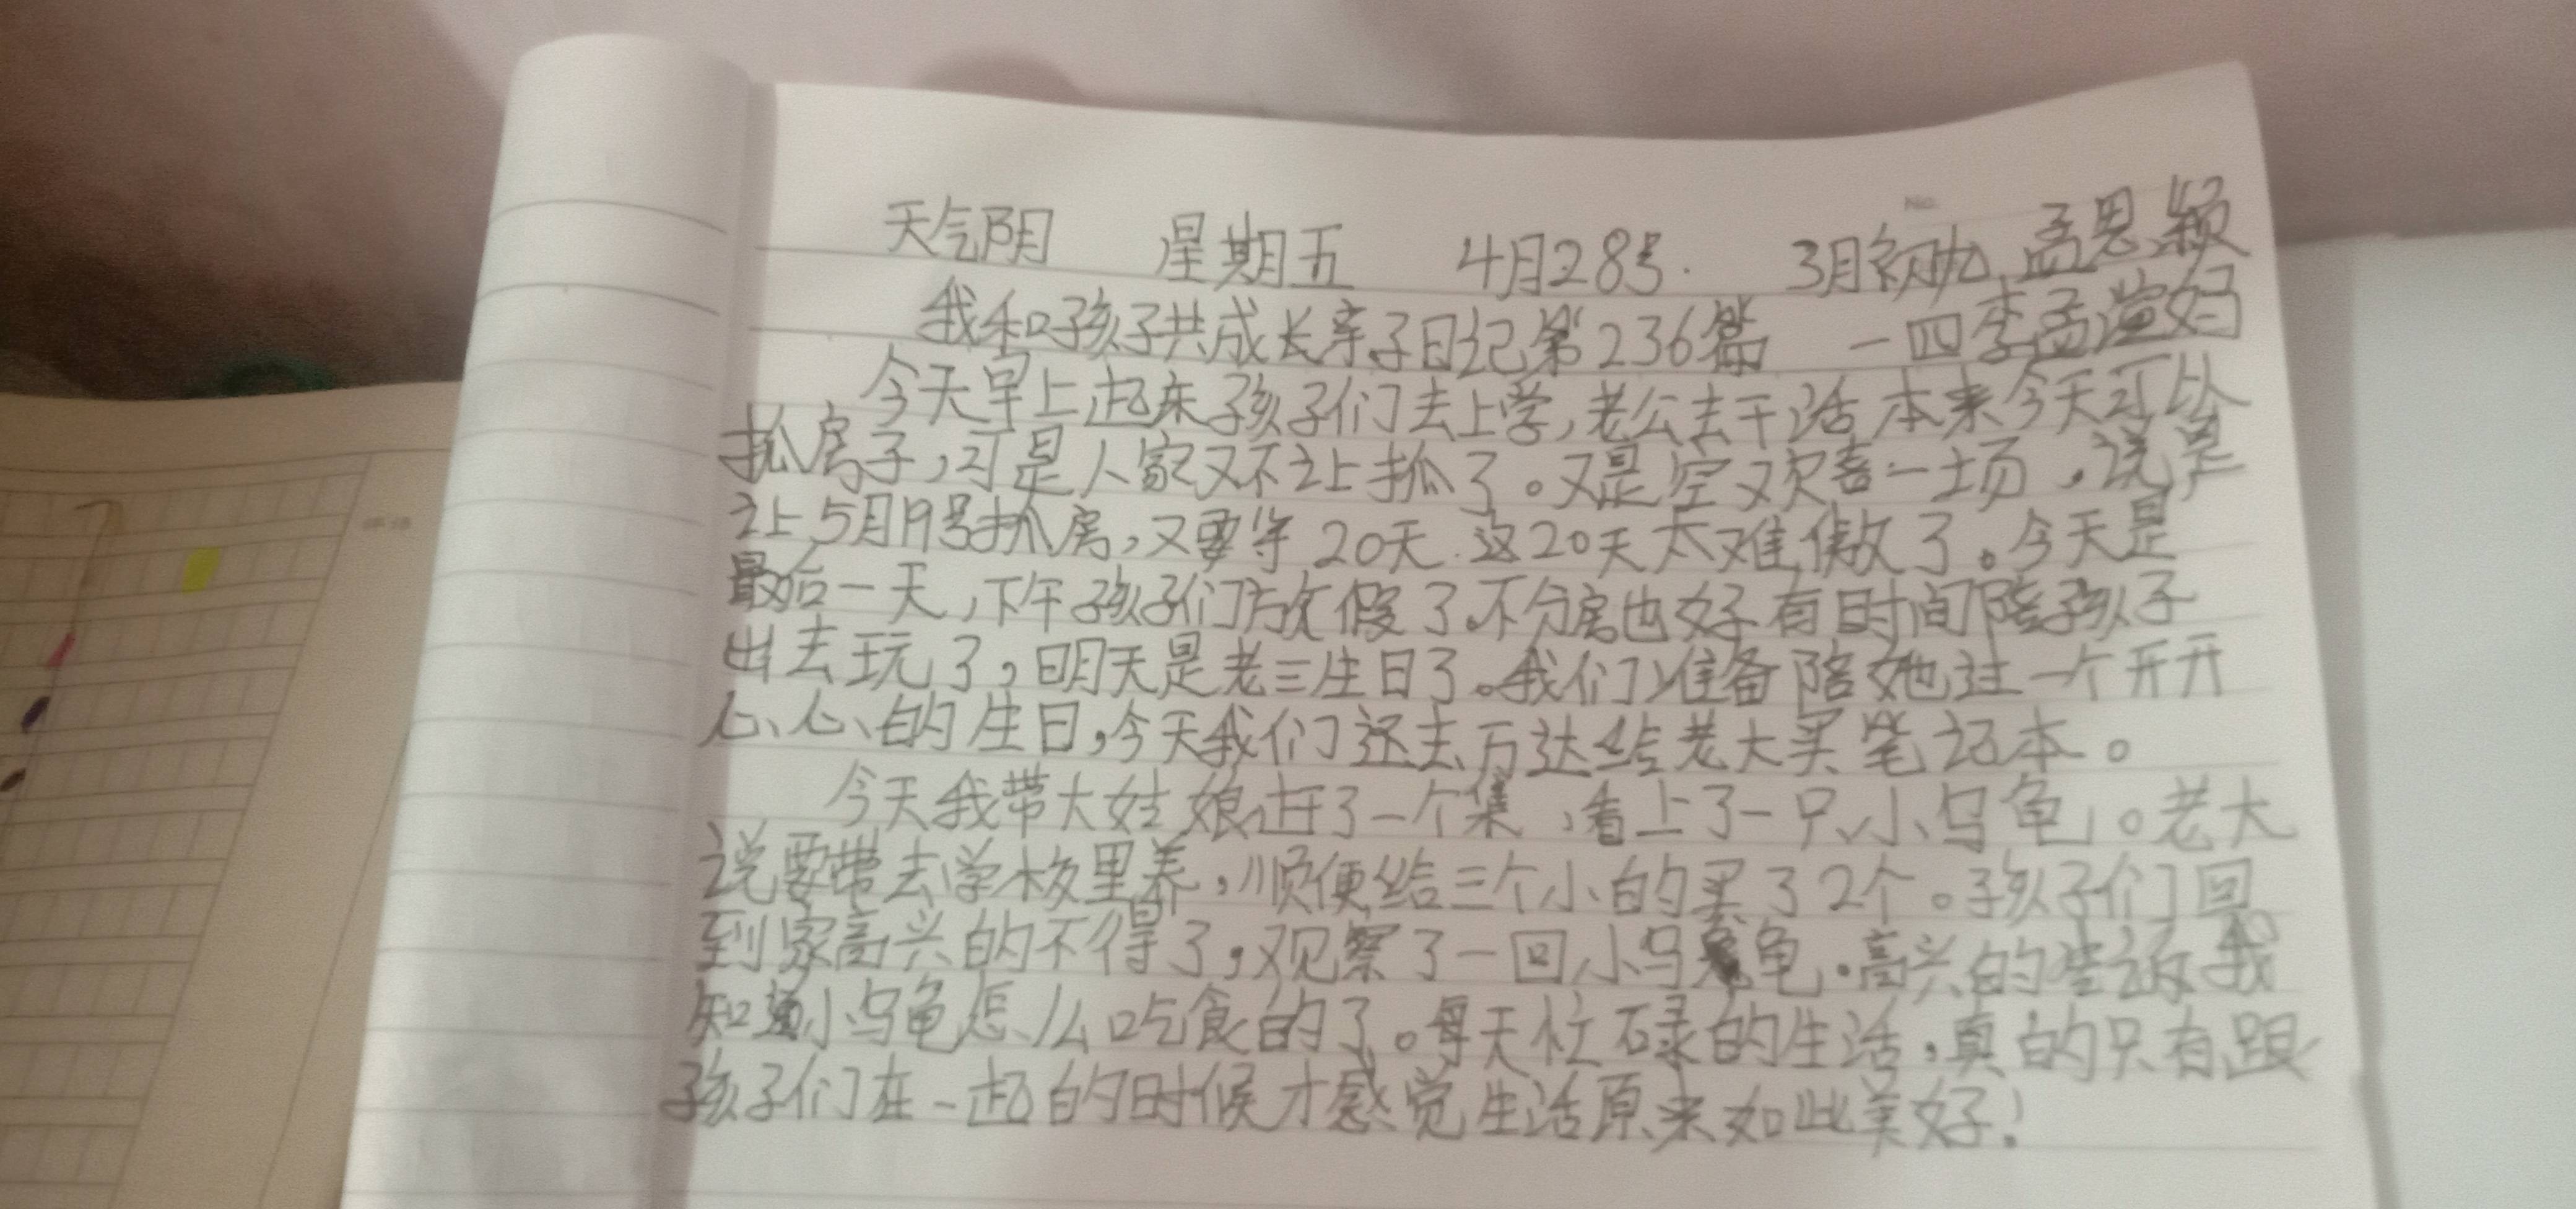 No.
天气阴 星期五 4月28号. 3月初九 孟思颖
我和孩子共成长亲子日记第236篇 一四李孟萱妈
今天早上起来孩子们去上学,老公去干活 本来今天可以
抓房子,可是人家又不让抓了。又是空欢喜一场,说是
让上5月19号抓房,又要等20天.这20天太难熬了。今天是
最后一天,下午孩子们放假了.不分房也好有时间陪孩子
出去玩了,明天是老三生日了。我们准备陪她过一个开开
心心的生日,今天我们还去万达给老大买笔记本。
今天我带大姑娘赶了一个集,看上了一只小乌龟。老大
说要带去学校里养,顺便给三个小的买了2个。孩子们回
到家高兴的不得了,观察了一回小乌龟.高兴的告诉我
知道小乌龟怎么吃食的了。每天忙碌的生活,真的只有跟
孩子们在一起的时候才感觉生活原来如此美好!